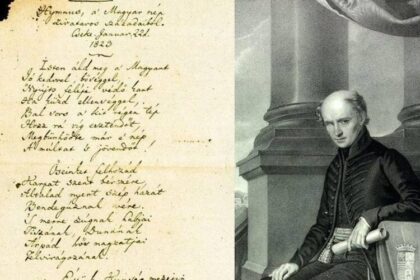 Hymnus, a' Magyar nép
zivataros századaiból.
Cseke Januar. 22d.
1823
Isten áld meg a' Magyart
Jó kedvvel, bőséggel,
Nyújts feléje védő kart
Ha küzd ellenséggel,
Bal sors a' kit régen tép
Hozz rá víg esztendőt,
Megbünhödte már e' nép
A' multat 's jövendőt!
Őseinket felhozád
Kárpát szent bérczére,
Általad nyert szép hazát
Bendegúznak vére.
'S merre zúgnak habjai
Tiszának, Dunának
Árpád hős magzatjai
Felvirágozának.